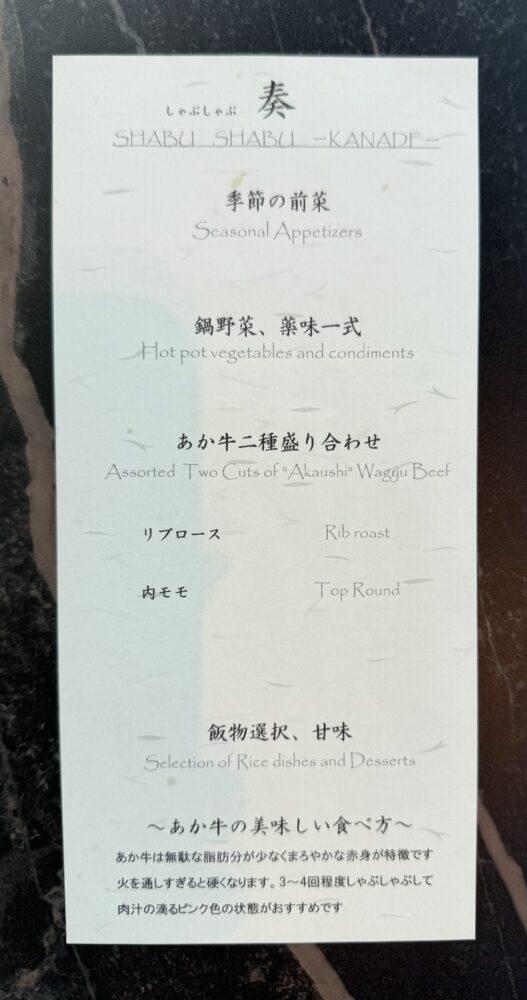 しゃぶしゃぶ 奏
SHABU SHABU －KANADE－
季節の前菜
Seasonal Appetizers
鍋野菜、薬味一式
Hot pot vegetables and condiments
あか牛二種盛り合わせ
Assorted Two Cuts of "Akaushi" Wagyu Beef
リブロース Rib roast
内モモ Top Round
飯物選択、甘味
Selection of Rice dishes and Desserts
～あか牛の美味しい食べ方～
あか牛は無駄な脂肪分が少なくまろやかな赤身が特徴です
火を通しすぎると硬くなります。3～4回程度しゃぶしゃぶして
肉汁の滴るピンク色の状態がおすすめです